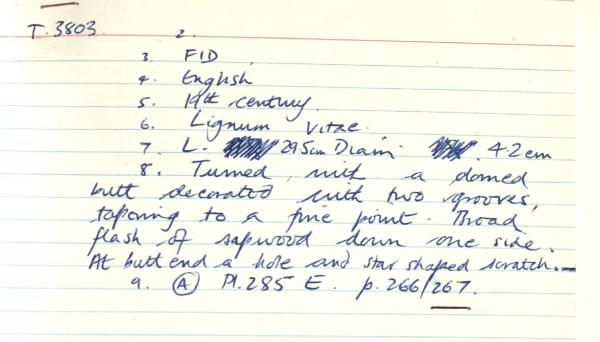 T.3803 2.
3. FID.
4. English
5. 19th century.
6. Lignum Vitae.
7. L. 29.5cm Diam 4.2cm
8. Turned, with a domed
butt decorated with two grooves,
tapering to a fine point. Broad
flash of sapwood down one side.
At butt end a hole and star shaped scratch.
9. A Pl.285 E. p.266/267.